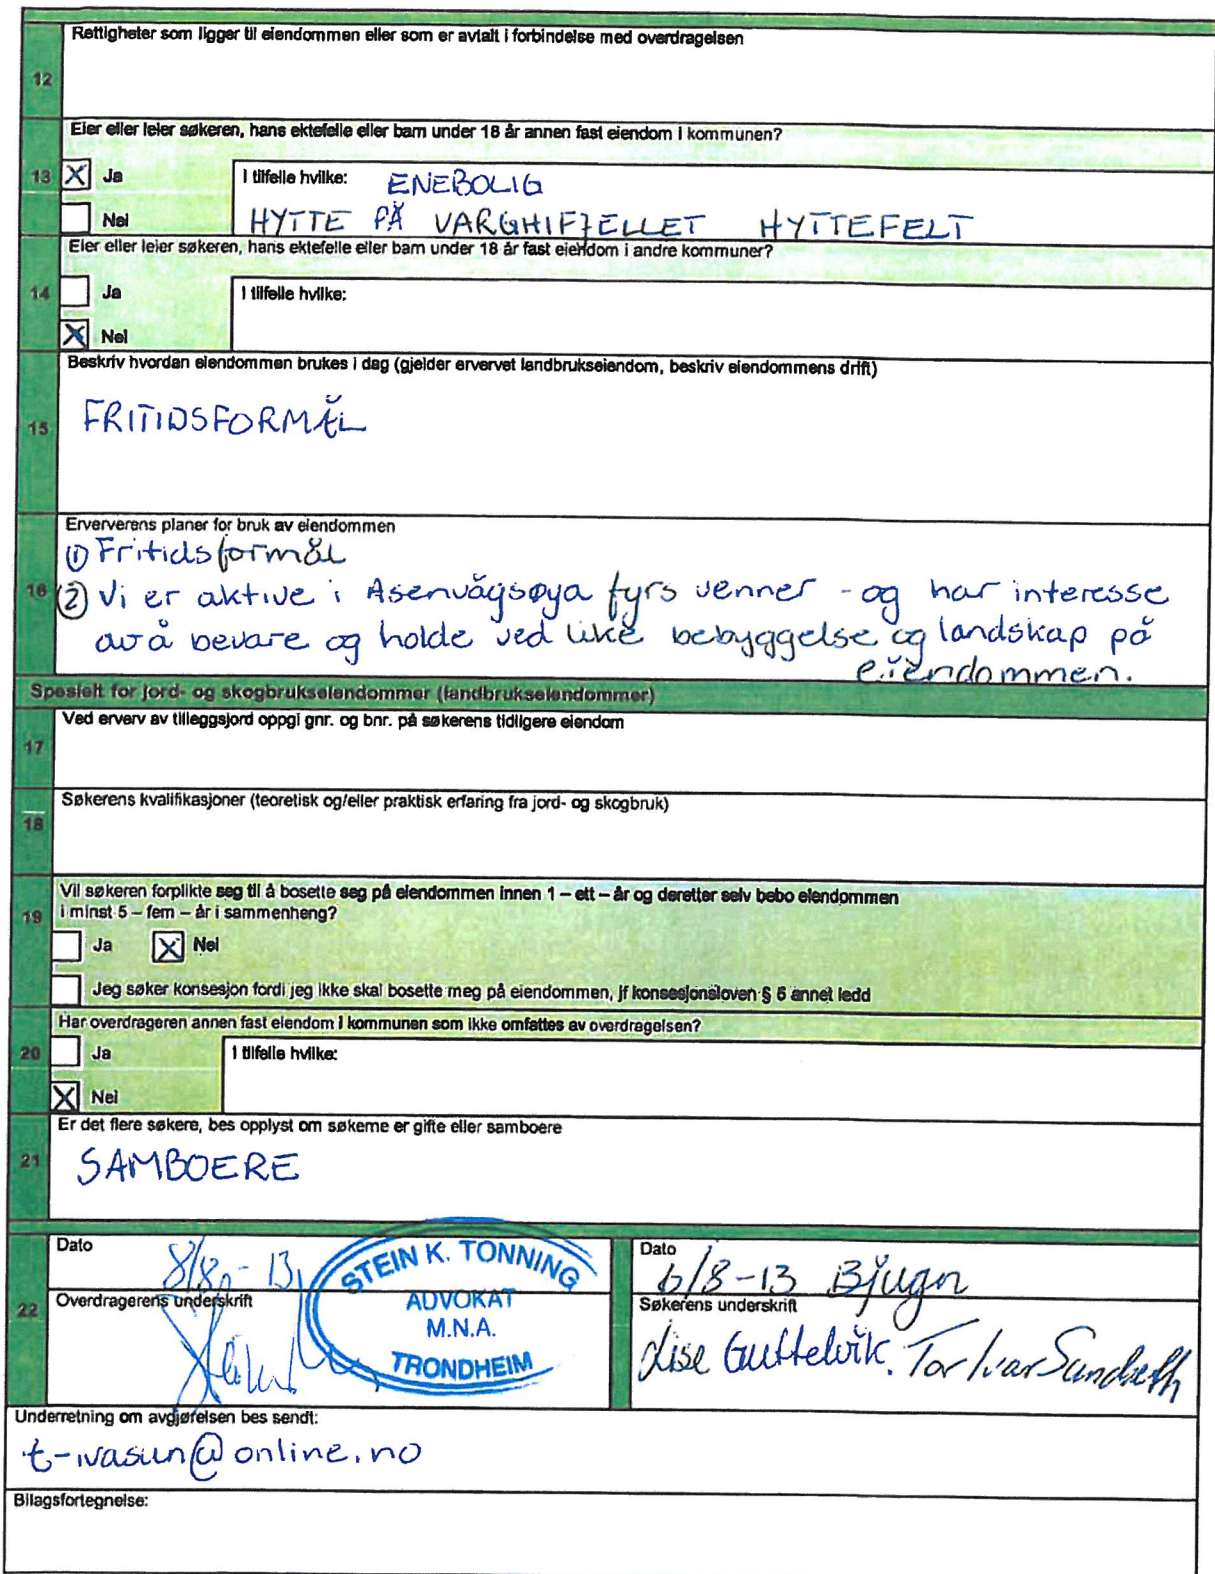 Rettigheter som ligger til eiendommen eller som er avtalt i forbindelse med overdragelsen
12
Eier eller leier søkeren, hans ektefelle eller barn under 18 år annen fast eiendom i kommunen?
13
X Ja
I tilfelle hvilke: ENEBOLIG
Nei
HYTTE PÅ VARGHIFJELLET HYTTEFELT
Eier eller leier søkeren, hans ektefelle eller barn under 18 år fast eiendom i andre kommuner?
14
Ja
I tilfelle hvilke:
X Nei
Beskriv hvordan eiendommen brukes i dag (gjelder ervervet landbrukseiendom, beskriv eiendommens drift)
15
FRITIDSFORMÅL
Erververens planer for bruk av eiendommen
① Fritidsformål
16
② Vi er aktive i Asenvågsøya fyrs venner - og har interesse
av å bevare og holde ved like bebyggelse og landskap på
eiendommen.
Spesielt for jord- og skogbrukseiendommer (landbrukseiendommer)
Ved erverv av tilleggsjord oppgi gnr. og bnr. på søkerens tidligere eiendom
17
Søkerens kvalifikasjoner (teoretisk og/eller praktisk erfaring fra jord- og skogbruk)
18
Vil søkeren forplikte seg til å bosette seg på eiendommen innen 1 – ett – år og deretter selv bebo eiendommen
19
i minst 5 – fem – år i sammenheng?
Ja X Nei
Jeg søker konsesjon fordi jeg ikke skal bosette meg på eiendommen, jf konsesjonsloven § 5 annet ledd
Har overdrageren annen fast eiendom i kommunen som ikke omfattes av overdragelsen?
20
Ja
I tilfelle hvilke:
X Nei
Er det flere søkere, bes opplyst om søkerne er gifte eller samboere
21
SAMBOERE
22
Dato
8/8 - 13
Overdragerens underskrift
STEIN K. TONNING
ADVOKAT
M.N.A.
TRONDHEIM
Dato
6/8-13 Bjugn
Søkerens underskrift
Lise Guttelvik. Tor Ivar Sandseth
Underretning om avgjørelsen bes sendt:
t-ivasun@online.no
Bilagsfortegnelse: